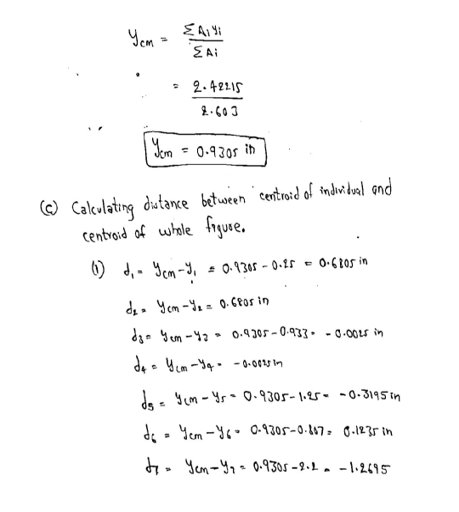 Ycm = ΣAiyi / ΣAi
= 2.42215 / 2.603
Ycm = 0.9305 in
(c) Calculating distance between centroid of individual and
centroid of whole figure.
(1) d1 = Ycm-Y1 = 0.9305 - 0.25 = 0.6805 in
d2 = Ycm-Y2 = 0.6805 in
d3 = Ycm-Y3 = 0.9305-0.933 = -0.0025 in
d4 = Ycm-Y4 = -0.0025 in
d5 = Ycm-Y5 = 0.9305-1.25 = -0.3195 in
d6 = Ycm-Y6 = 0.9305-0.807 = 0.1235 in
d7 = Ycm-Y7 = 0.9305-2.2 = -1.2695